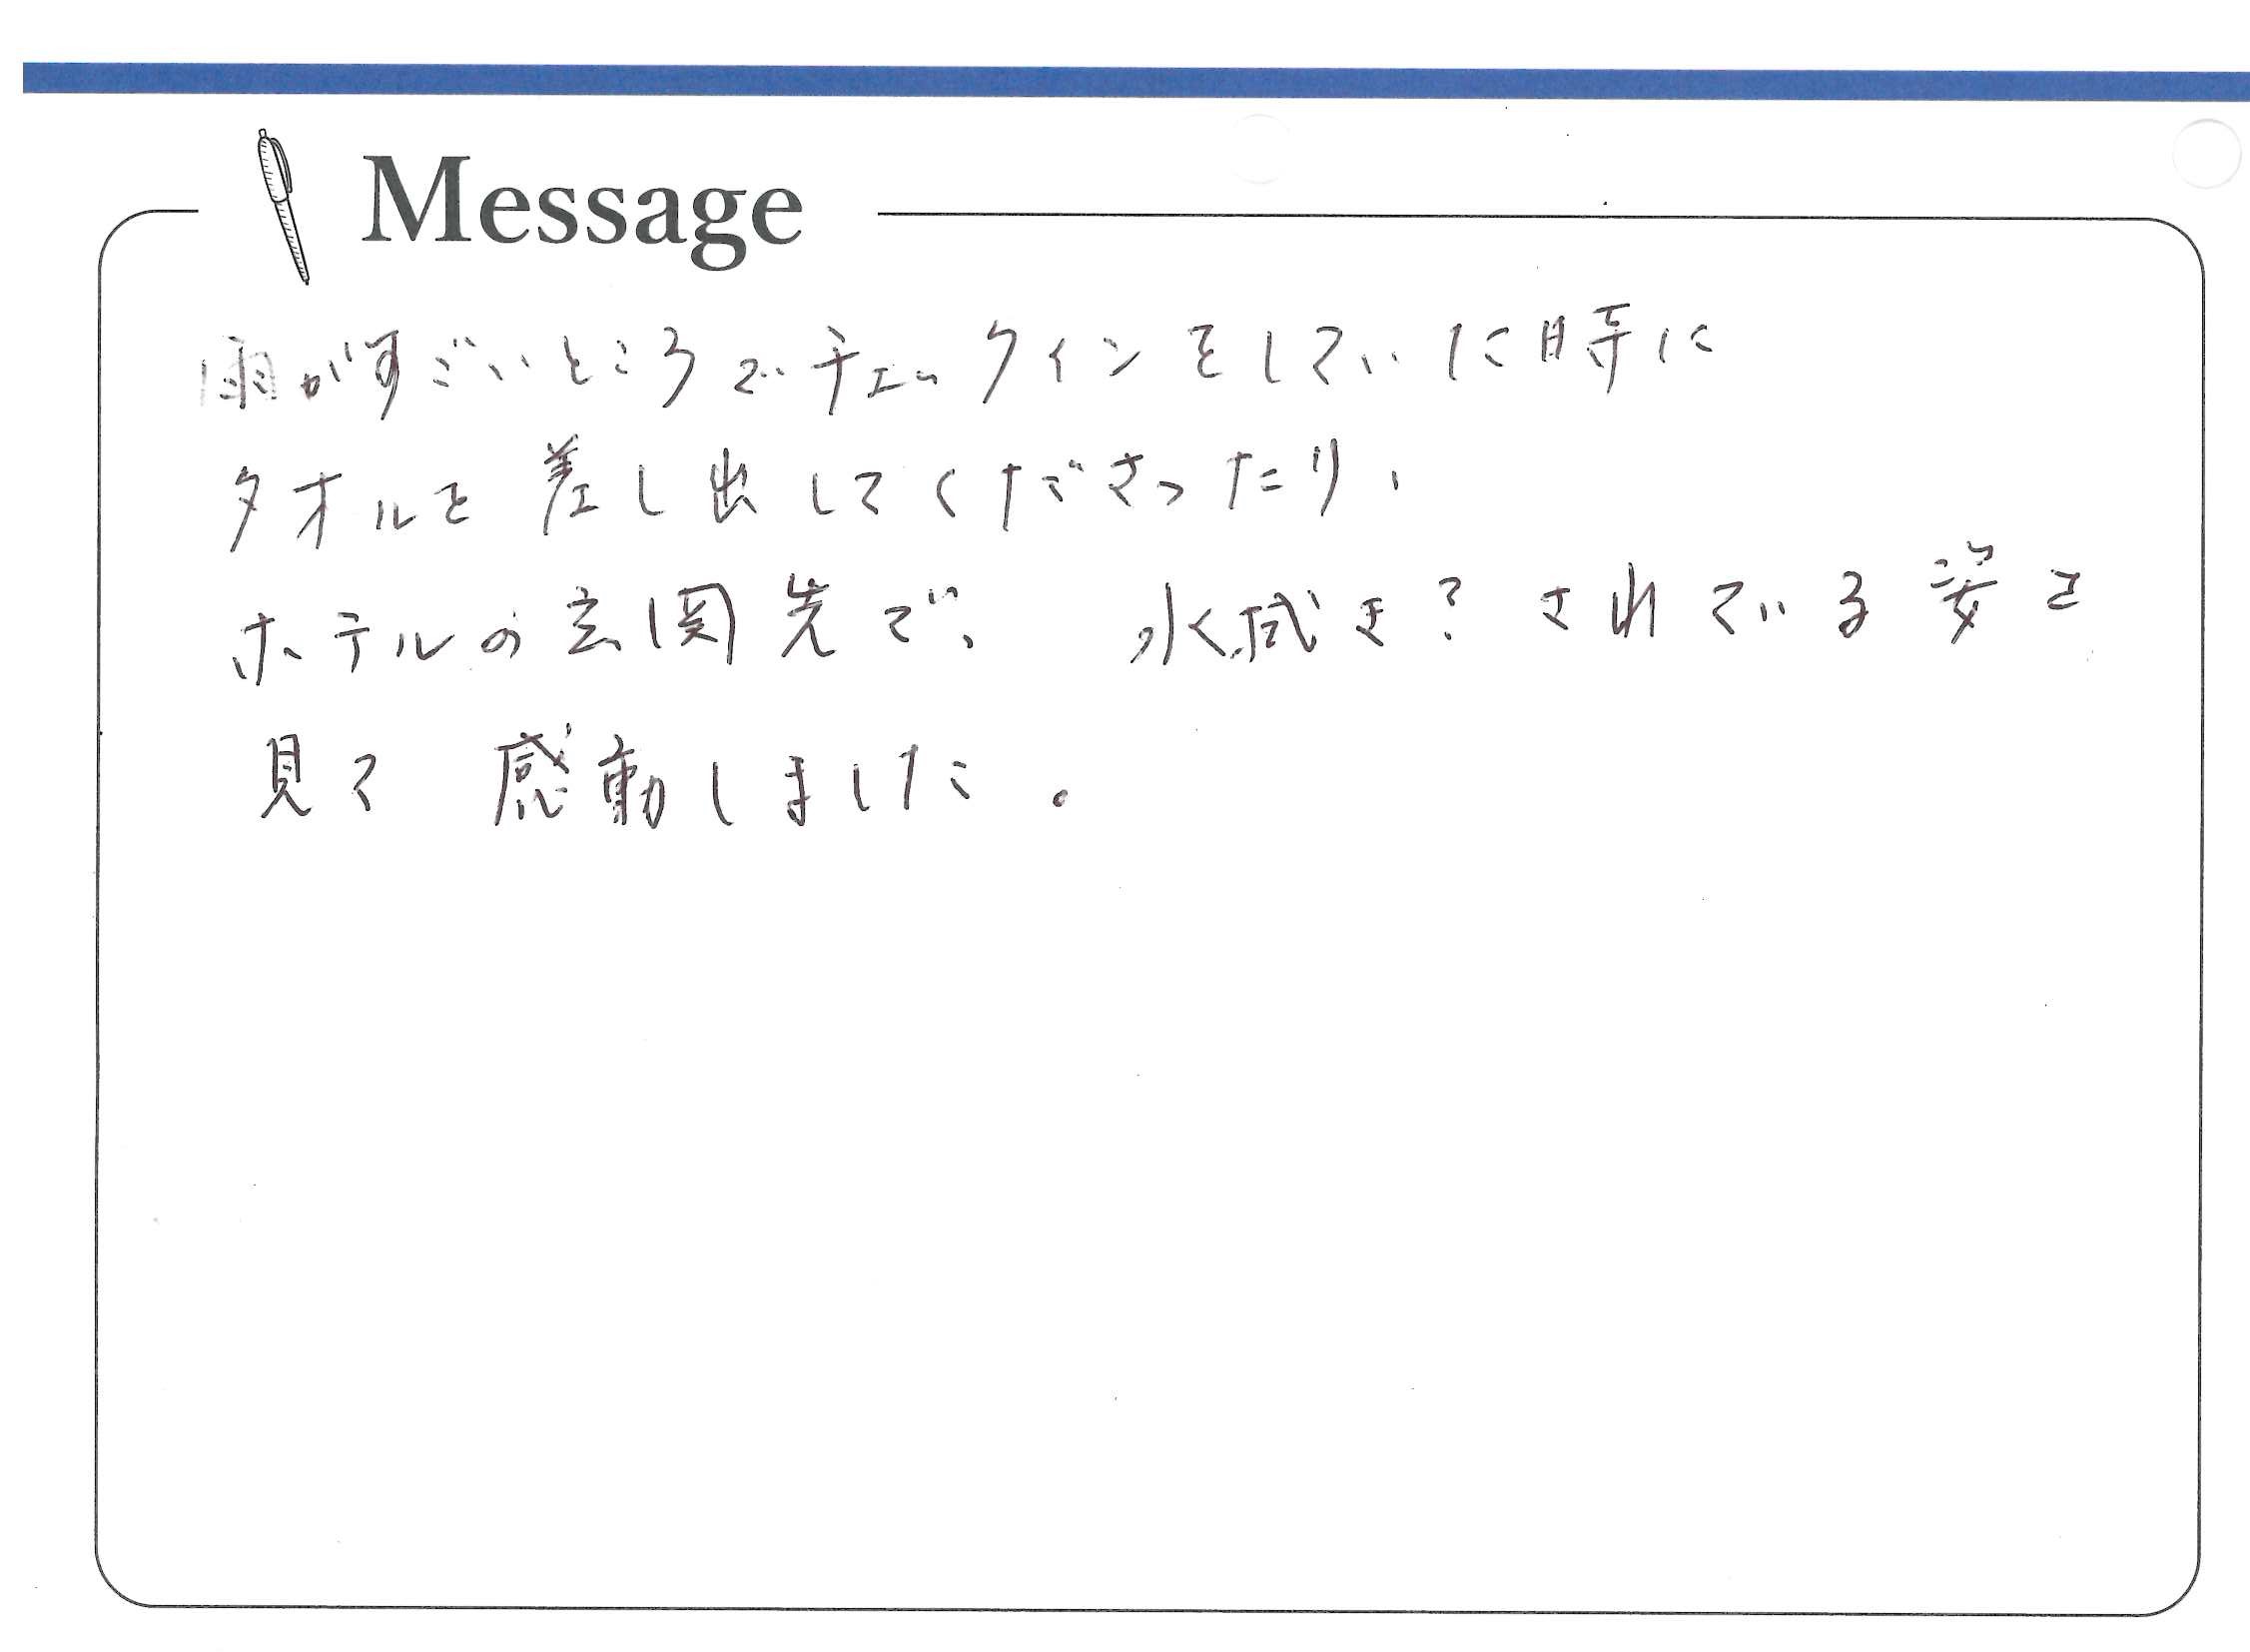 Message
雨がすごいところでチェックインをしていた時に
タオルを差し出してくださったり、
ホテルの玄関先で、水拭き?されている姿を
見て 感動しました。